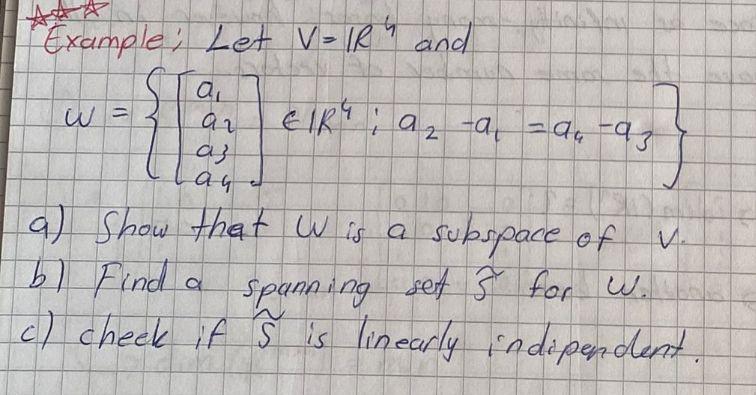 Example; Let V = ℝ⁴ and
W = { [a₁ a₂ a₃ a₄] ∈ ℝ⁴ ; a₂ - a₁ = a₄ - a₃ }
a) Show that W is a subspace of V.
b) Find a spanning set S̃ for W.
c) check if S̃ is linearly independent.